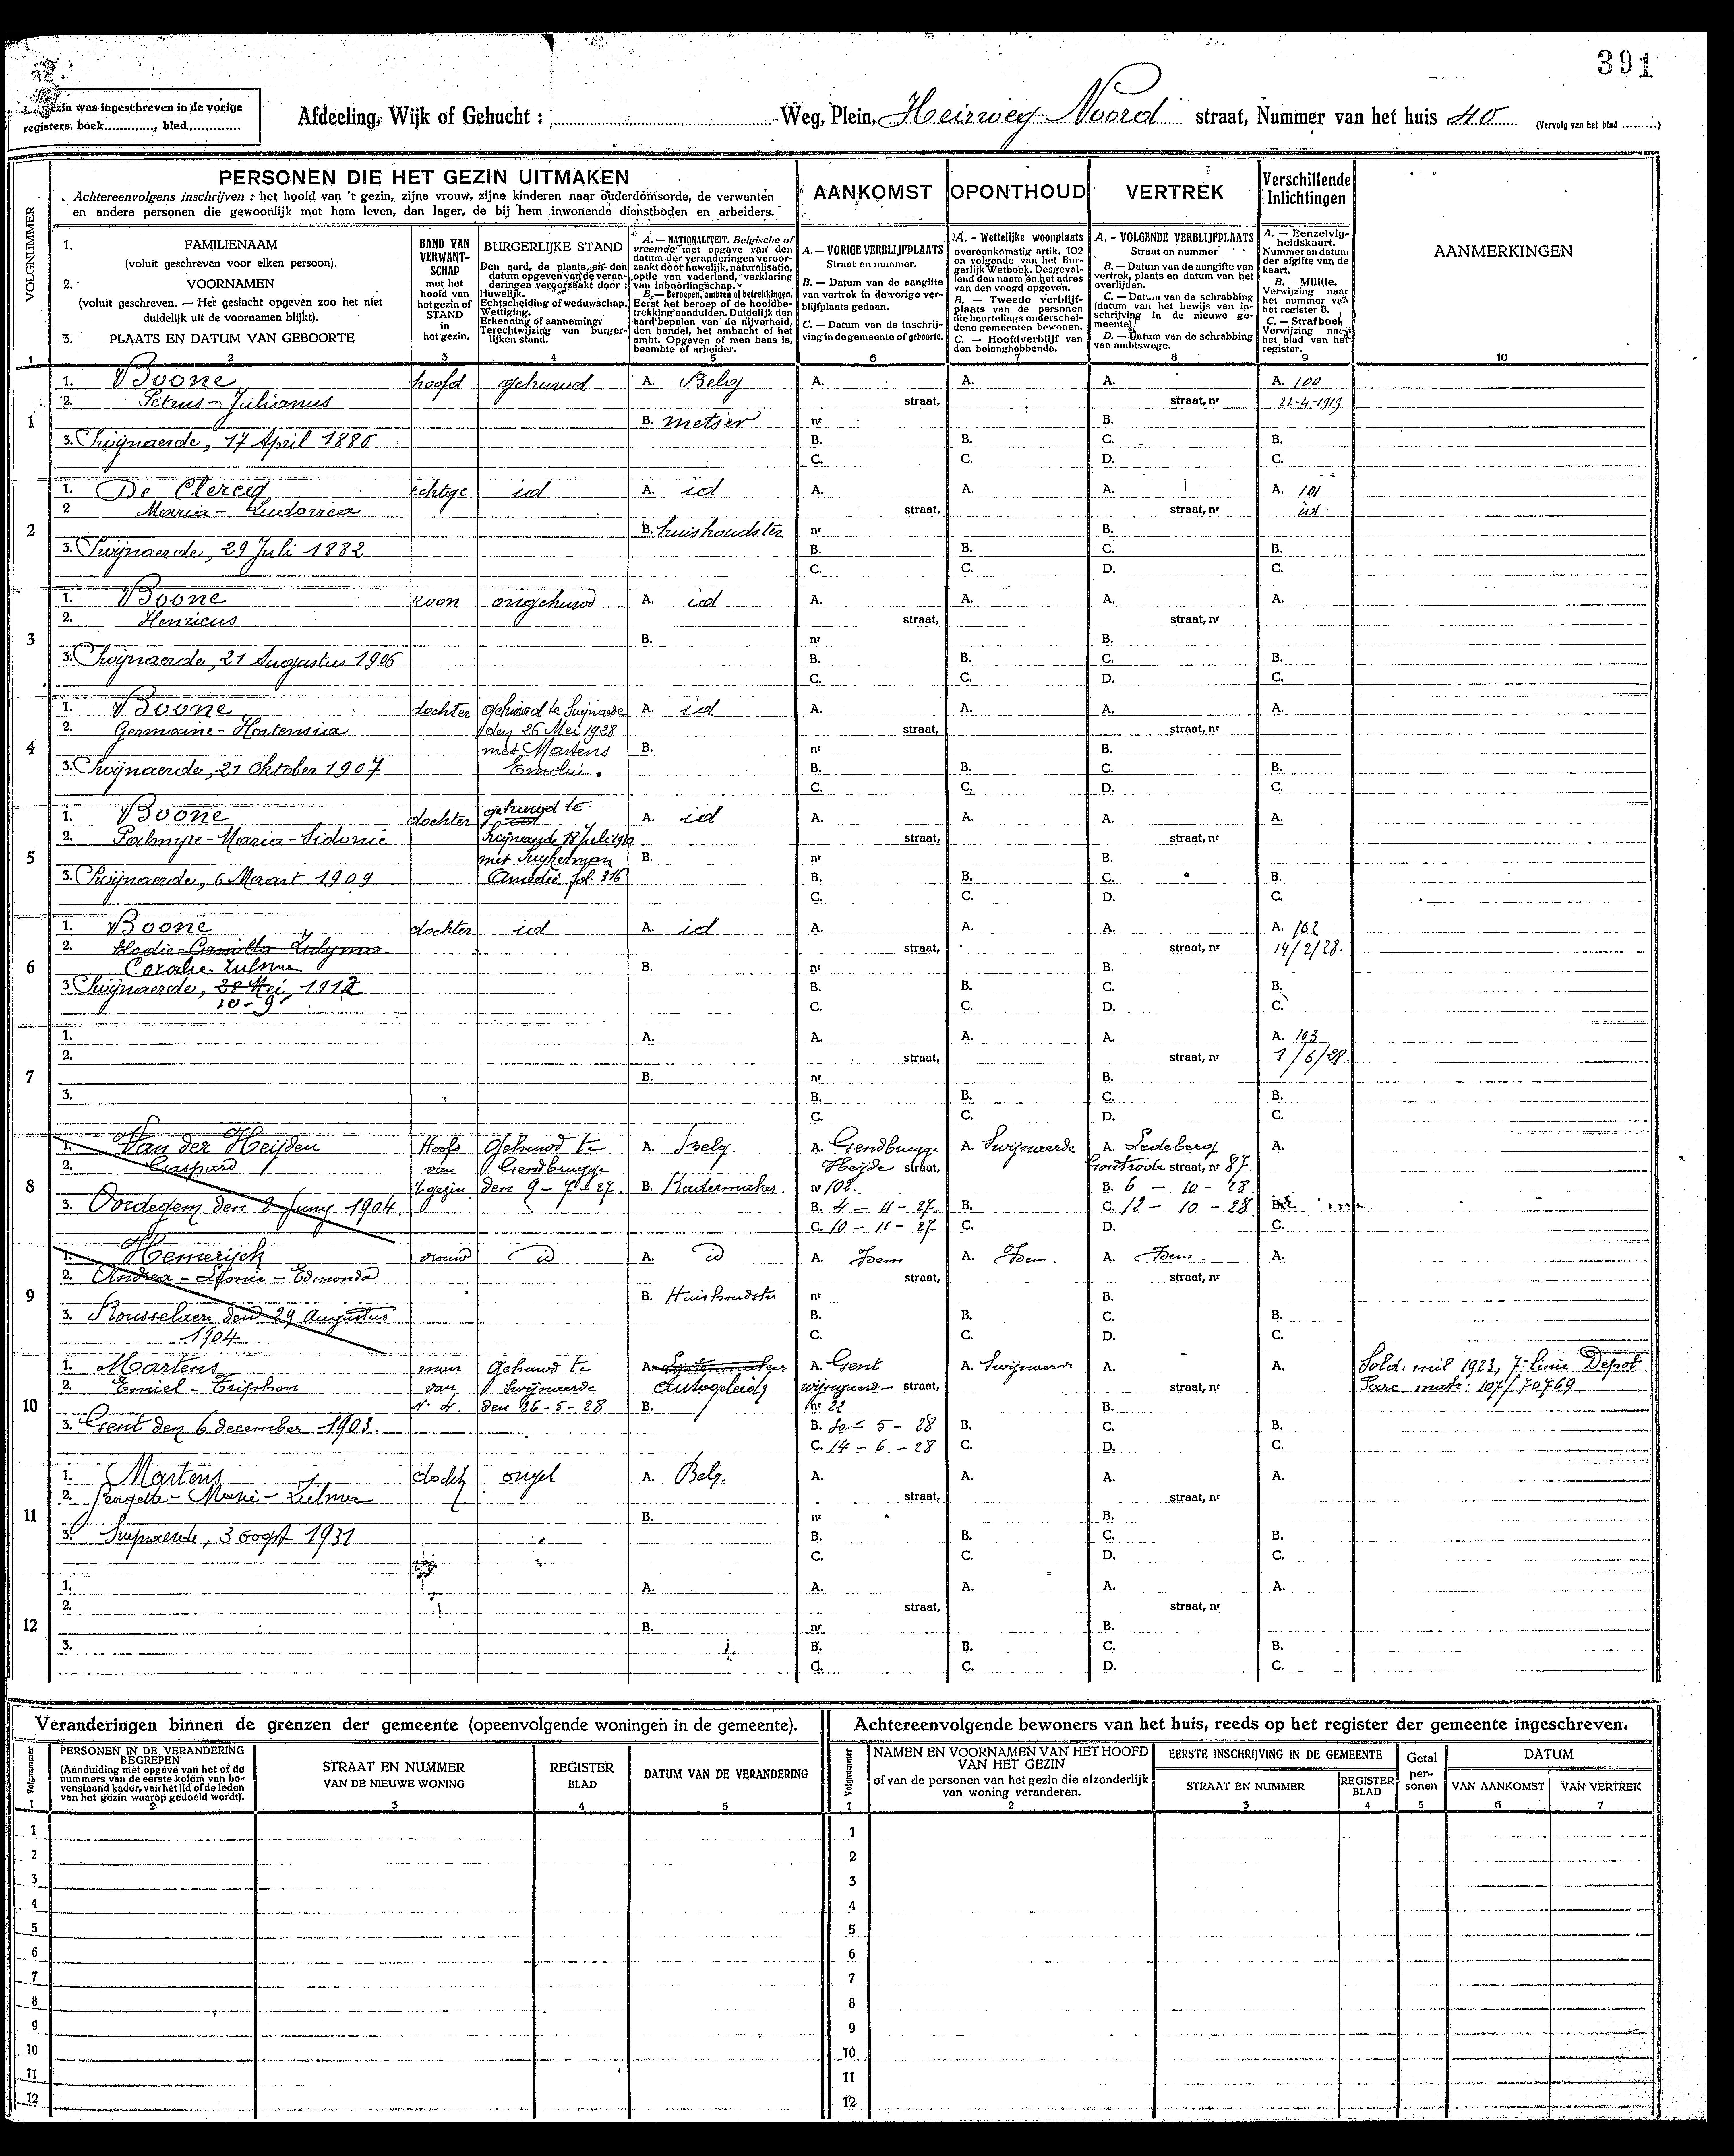 391
gezin was ingeschreven in de vorige
registers, boek............, blad..............
Afdeeling, Wijk of Gehucht : Weg, Plein, Heirweg-Noord straat, Nummer van het huis 40 (Vervolg van het blad .........)
PERSONEN DIE HET GEZIN UITMAKEN
Achtereenvolgens inschrijven : het hoofd van 't gezin, zijne vrouw, zijne kinderen naar ouderdomsorde, de verwanten
en andere personen die gewoonlijk met hem leven, dan lager, de bij hem inwonende dienstboden en arbeiders.
AANKOMST OPONTHOUD VERTREK
Verschillende
Inlichtingen
AANMERKINGEN
VOLGNUMMER
1. FAMILIENAAM
(voluit geschreven voor elken persoon).
2. VOORNAMEN
(voluit geschreven. — Het geslacht opgeven zoo het niet
duidelijk uit de voornamen blijkt).
3. PLAATS EN DATUM VAN GEBOORTE
BAND VAN
VERWANT-
SCHAP
met het
hoofd van
het gezin of
STAND
in
het gezin.
BURGERLIJKE STAND
Den aard, de plaats en den
datum opgeven van de veran-
deringen veroorzaakt door :
Huwelijk.
Echtscheiding of weduwschap.
Wettiging.
Erkenning of aanneming.
Terechtwijzing van burger-
lijken stand.
A. — NATIONALITEIT. Belgische of
vreemde met opgave van den
datum der veranderingen veroor-
zaakt door huwelijk, naturalisatie,
optie van vaderland, verklaring
van inboorlingschap.
B. — Beroepen, ambten of betrekkingen.
Eerst het beroep of de hoofdbe-
trekking aanduiden. Duidelijk den
aard bepalen van de nijverheid,
den handel, het ambacht of het
ambt. Opgeven of men baas is,
beambte of arbeider.
A. — VORIGE VERBLIJFPLAATS
Straat en nummer.
B. — Datum van de aangifte
van vertrek in de vorige ver-
blijfplaats gedaan.
C. — Datum van de inschrij-
ving in de gemeente of geboorte.
A. - Wettelijke woonplaats
overeenkomstig artik. 102
en volgende van het Bur-
gerlijk Wetboek. Desgeval-
lend den naam en het adres
van den voogd opgeven.
B. — Tweede verblijf-
plaats van de personen
die beurtelings onderschei-
dene gemeenten bewonen.
C. — Hoofdverblijf van
den belanghebbende.
A. - VOLGENDE VERBLIJFPLAATS
Straat en nummer
B. — Datum van de aangifte van
vertrek, plaats en datum van het
overlijden.
C. — Datum van de schrabbing
(datum van het bewijs van in-
schrijving in de nieuwe ge-
meente).
D. — Datum van de schrabbing
van ambtswege.
A. — Eenzelvig-
heidskaart.
Nummer en datum
der afgifte van de
kaart.
B. - Militie.
Verwijzing naar
het nummer van
het register B.
C. — Strafboek
Verwijzing naar
het blad van het
register.
1 2 3 4 5 6 7 8 9 10
1. Boone hoofd gehuwd A. Belg A. A. A. A. 100
2. Petrus-Julianus straat, straat, nr 22-4-1919
1 B. metser nr B.
3. Swijnaerde, 17 April 1880 B. B. C. B.
C. C. D. C.
1. De Clercq echtge id A. id A. A. A. A. 101
2 Maria-Ludovica straat, straat, nr id
2 B. huishoudster nr B.
3. Swijnaerde, 29 Juli 1882 B. B. C. B.
C. C. D. C.
1. Boone zoon ongehuwd A. id A. A. A. A.
2. Henricus straat, straat, nr
3 B. nr B.
3. Swijnaerde, 21 Augustus 1906 B. B. C. B.
C. C. D. C.
1. Boone dochter gehuwd te Swijnaerde A. id A. A. A. A.
2. Germaine-Hortensia den 26 Mei 1928 straat, straat, nr
4 met Martens B. nr B.
3. Swijnaerde, 21 Oktober 1907 Emiel B. B. C. B.
C. C. D. C.
1. Boone dochter gehuwd te A. id A. A. A. A.
2. Palmyre-Maria-Sidonie Swijnaerde 18 Juli 1930 straat, straat, nr
5 met B. nr B.
3. Swijnaerde, 6 Maart 1909 Amedée fol. 316 B. B. C. B.
C. C. D. C.
1. Boone dochter id A. id A. A. A. A. 102
2. Elodie-Camilla Zulyma straat, straat, nr 14/2/28.
6 Coralie-Zulma B. nr B.
3 Swijnaerde, 28 Mei 1912 B. B. C. B.
10-9 C. C. D. C.
1. A. A. A. A. A. 103
2. straat, straat, nr 7/6/28
7 B. nr B.
3. B. B. C. B.
C. C. D. C.
1. Van der Heijden Hoofd Gehuwd te A. Belg. A. Gendbrugge A. Swijnaerde A. Ledeberg A.
2. Gaspard van Gendbrugge Heijde straat, straat, nr 87
8 't gezin den 9-7-27. B. Kadermaker. nr 102. B. 6 - 10 - 28
3. Oordegem den 2 Juny 1904. B. 4 - 11 - 27. B. C. 12 - 10 - 28 B.
C. 10 - 11 - 27 C. D. C.
1. Hemerijck vrouw id A. id A. Idem A. Idem. A. Idem. A.
2. Andrea-Leonie-Edmonda straat, straat, nr
9 B. Huishoudster nr B.
3. Rousselaere den 29 Augustus B. B. C. B.
1904 C. C. D. C.
1. Martens man Gehuwd te A. Lijstenmaker A. Gent A. Swijnaerde A. A. Sold. mil 1923, 7e linie Depot
2. Emiel-Triphon van Swijnaerde Autogeleider straat, straat, nr 107/70769
10 N. 4. den 26-5-28 B. Nr 22 B.
3. Gent den 6 december 1903. B. 30 - 5 - 28 B. C. B.
C. 14 - 6 - 28 C. D. C.
1. Martens docht ongeh A. Belg. A. A. A. A.
2. Georgette-Marie-Zulma straat, straat, nr
11 B. nr B.
3. Swijnaerde, 3 oogst 1931 B. B. C. B.
C. C. D. C.
1. A. A. A. A. A.
2. straat, straat, nr
12 B. nr B.
3. B. B. C. B.
C. C. D. C.
Veranderingen binnen de grenzen der gemeente (opeenvolgende woningen in de gemeente).
Volgnummer
PERSONEN IN DE VERANDERING
BEGREPEN
(Aanduiding met opgave van het of de
nummers van de eerste kolom van bo-
venstaand kader, van het lid of de leden
van het gezin waarop gedoeld wordt).
STRAAT EN NUMMER
VAN DE NIEUWE WONING
REGISTER
BLAD
DATUM VAN DE VERANDERING
1 2 3 4 5
1
2
3
4
5
6
7
8
9
10
11
12
Achtereenvolgende bewoners van het huis, reeds op het register der gemeente ingeschreven.
Volgnummer
NAMEN EN VOORNAMEN VAN HET HOOFD
VAN HET GEZIN
of van de personen van het gezin die afzonderlijk
van woning veranderen.
EERSTE INSCHRIJVING IN DE GEMEENTE
STRAAT EN NUMMER
REGISTER
BLAD
Getal
per-
sonen
DATUM
VAN AANKOMST VAN VERTREK
1 2 3 4 5 6 7
1
2
3
4
5
6
7
8
9
10
11
12